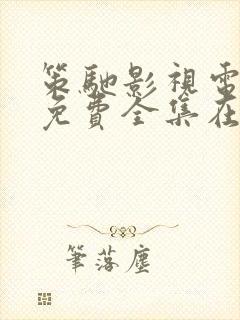 策馳影視電
免費全集在
筆落塵